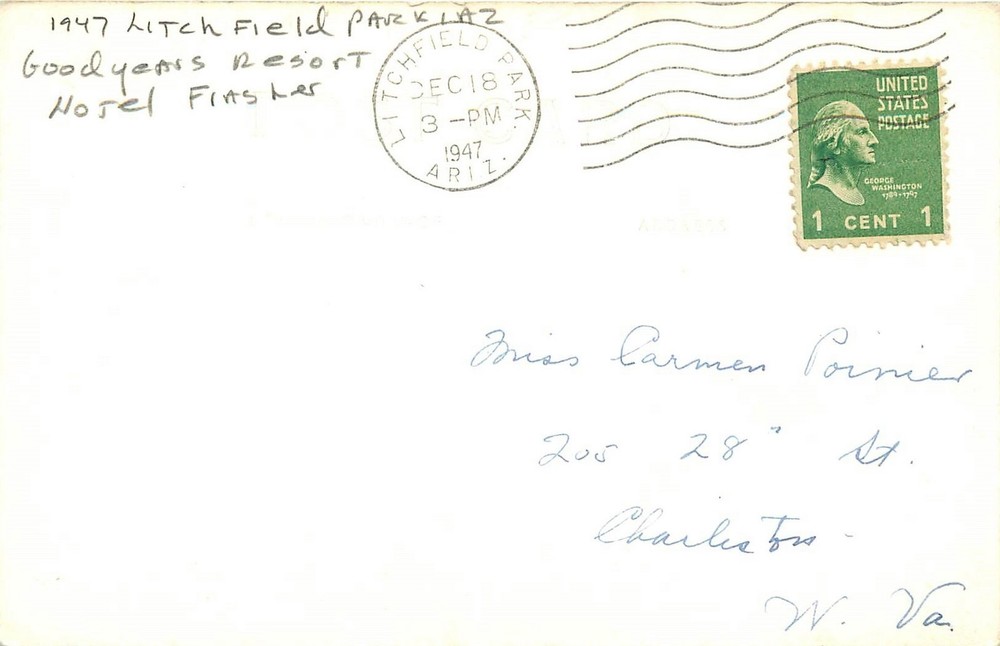 1947 Litchfield PARK, AZ
Goodyears Resort
Hotel Flasher
LITCHFIELD PARK.
DEC 18
3 -PM
1947
ARIZ.
UNITED
STATES
POSTAGE
GEORGE
WASHINGTON
1789-1797
1 CENT 1
Miss Carmen Poinier
205 28" St.
Charleston -
W. Va.